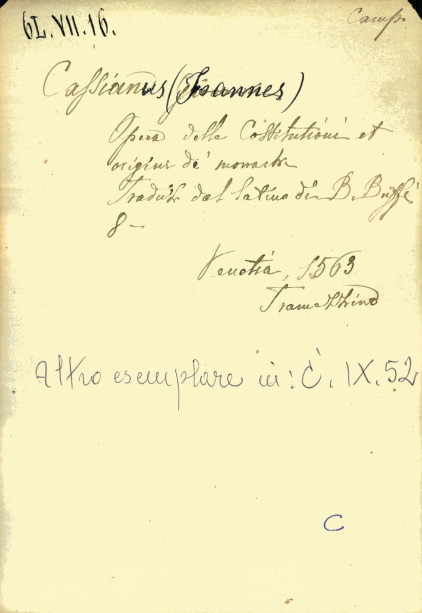 6L.VII.16.
Camp.
Cassianus (Joannes)
Opera delle Costitutioni et
origine de' monachi
Tradotta dal latino di B. Buffi
8-
Venetia, 1563
Tramezzino
Altro esemplare in: C. IX. 52
C